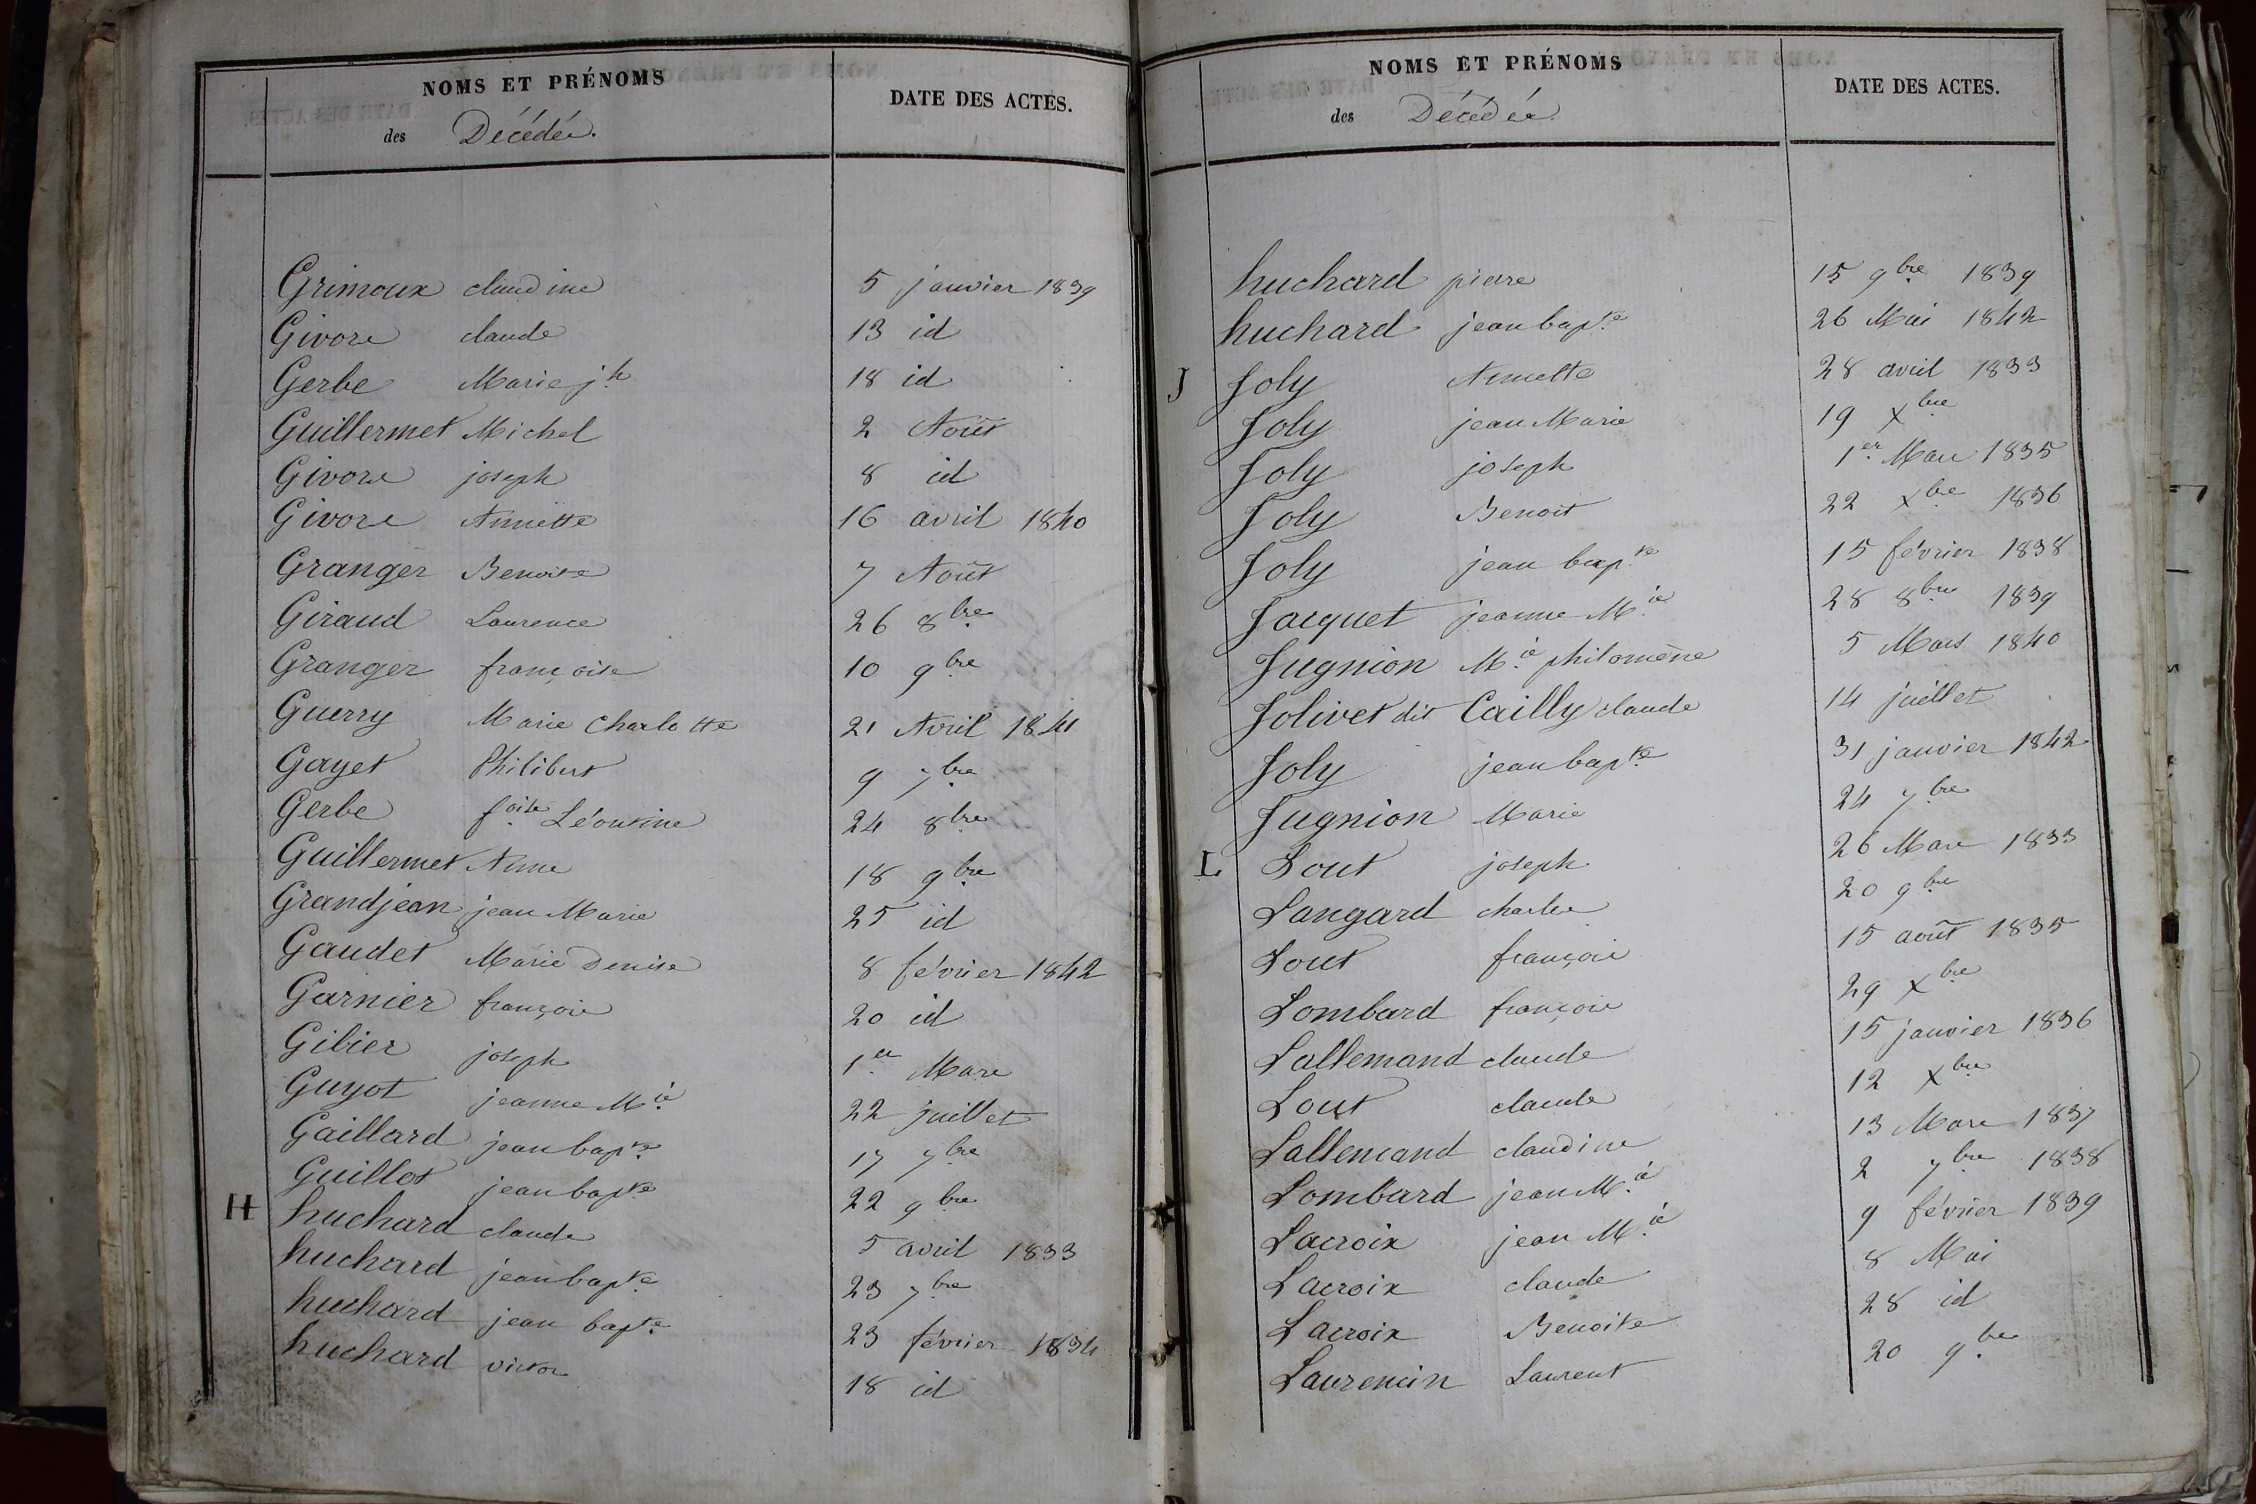 NOMS ET PRÉNOMS
des Décédés.
DATE DES ACTES.
Grimoux claudine 5 janvier 1839
Givore claude 13 id
Gerbe Marie jh 18 id
Guillermet Michel 2 Août
Givore joseph 8 id
Givore Annette 16 avril 1840
Granger Benoite 7 Août
Giraud Laurence 26 8bre
Granger françoise 10 9bre
Guerry Marie Charlotte 21 Avril 1841
Gayet Philibert 9 7bre
Gerbe foise Léontine 24 8bre
Guillermet Anne 18 9bre
Grandjean jean Marie 25 id
Gaudet Marie Denise 8 février 1842
Garnier françois 20 id
Gibier joseph 1er Mars
Guyot jeanne Mie 22 juillet
Gaillard jean bapte 17 7bre
Guillot jean bapte 22 9bre
H huchard claude 5 avril 1833
huchard jean bapte 23 7bre
huchard jean bapte 23 février 1834
huchard victor 18 id
NOMS ET PRÉNOMS
des Décédés
DATE DES ACTES.
huchard pierre 15 9bre 1839
huchard jean bapte 26 Mai 1842
J Joly Annette 28 avril 1833
Joly jean Marie 19 Xbre
Joly joseph 1er Mars 1835
Joly Benoit 22 Xbre 1836
Joly jean bapte 15 février 1838
Jacquet jeanne Mie 28 8bre 1839
Jugnion Mie philomène 5 Mars 1840
Jolivet dit Cailly claude 14 juillet
Joly jean bapte 31 janvier 1842
Jugnion Marie 24 7bre
L Lout joseph 26 Mars 1833
Langard charles 20 9bre
Lout françois 15 août 1835
Lombard françois 29 Xbre
Lallemand claude 15 janvier 1836
Lout claude 12 Xbre
Lallemand claudine 13 Mars 1837
Lombard jean Mie 2 7bre 1838
Lacroix jean Mie 9 février 1839
Lacroix claude 8 Mai
Lacroix Benoite 28 id
Laurencin Laurent 20 9bre